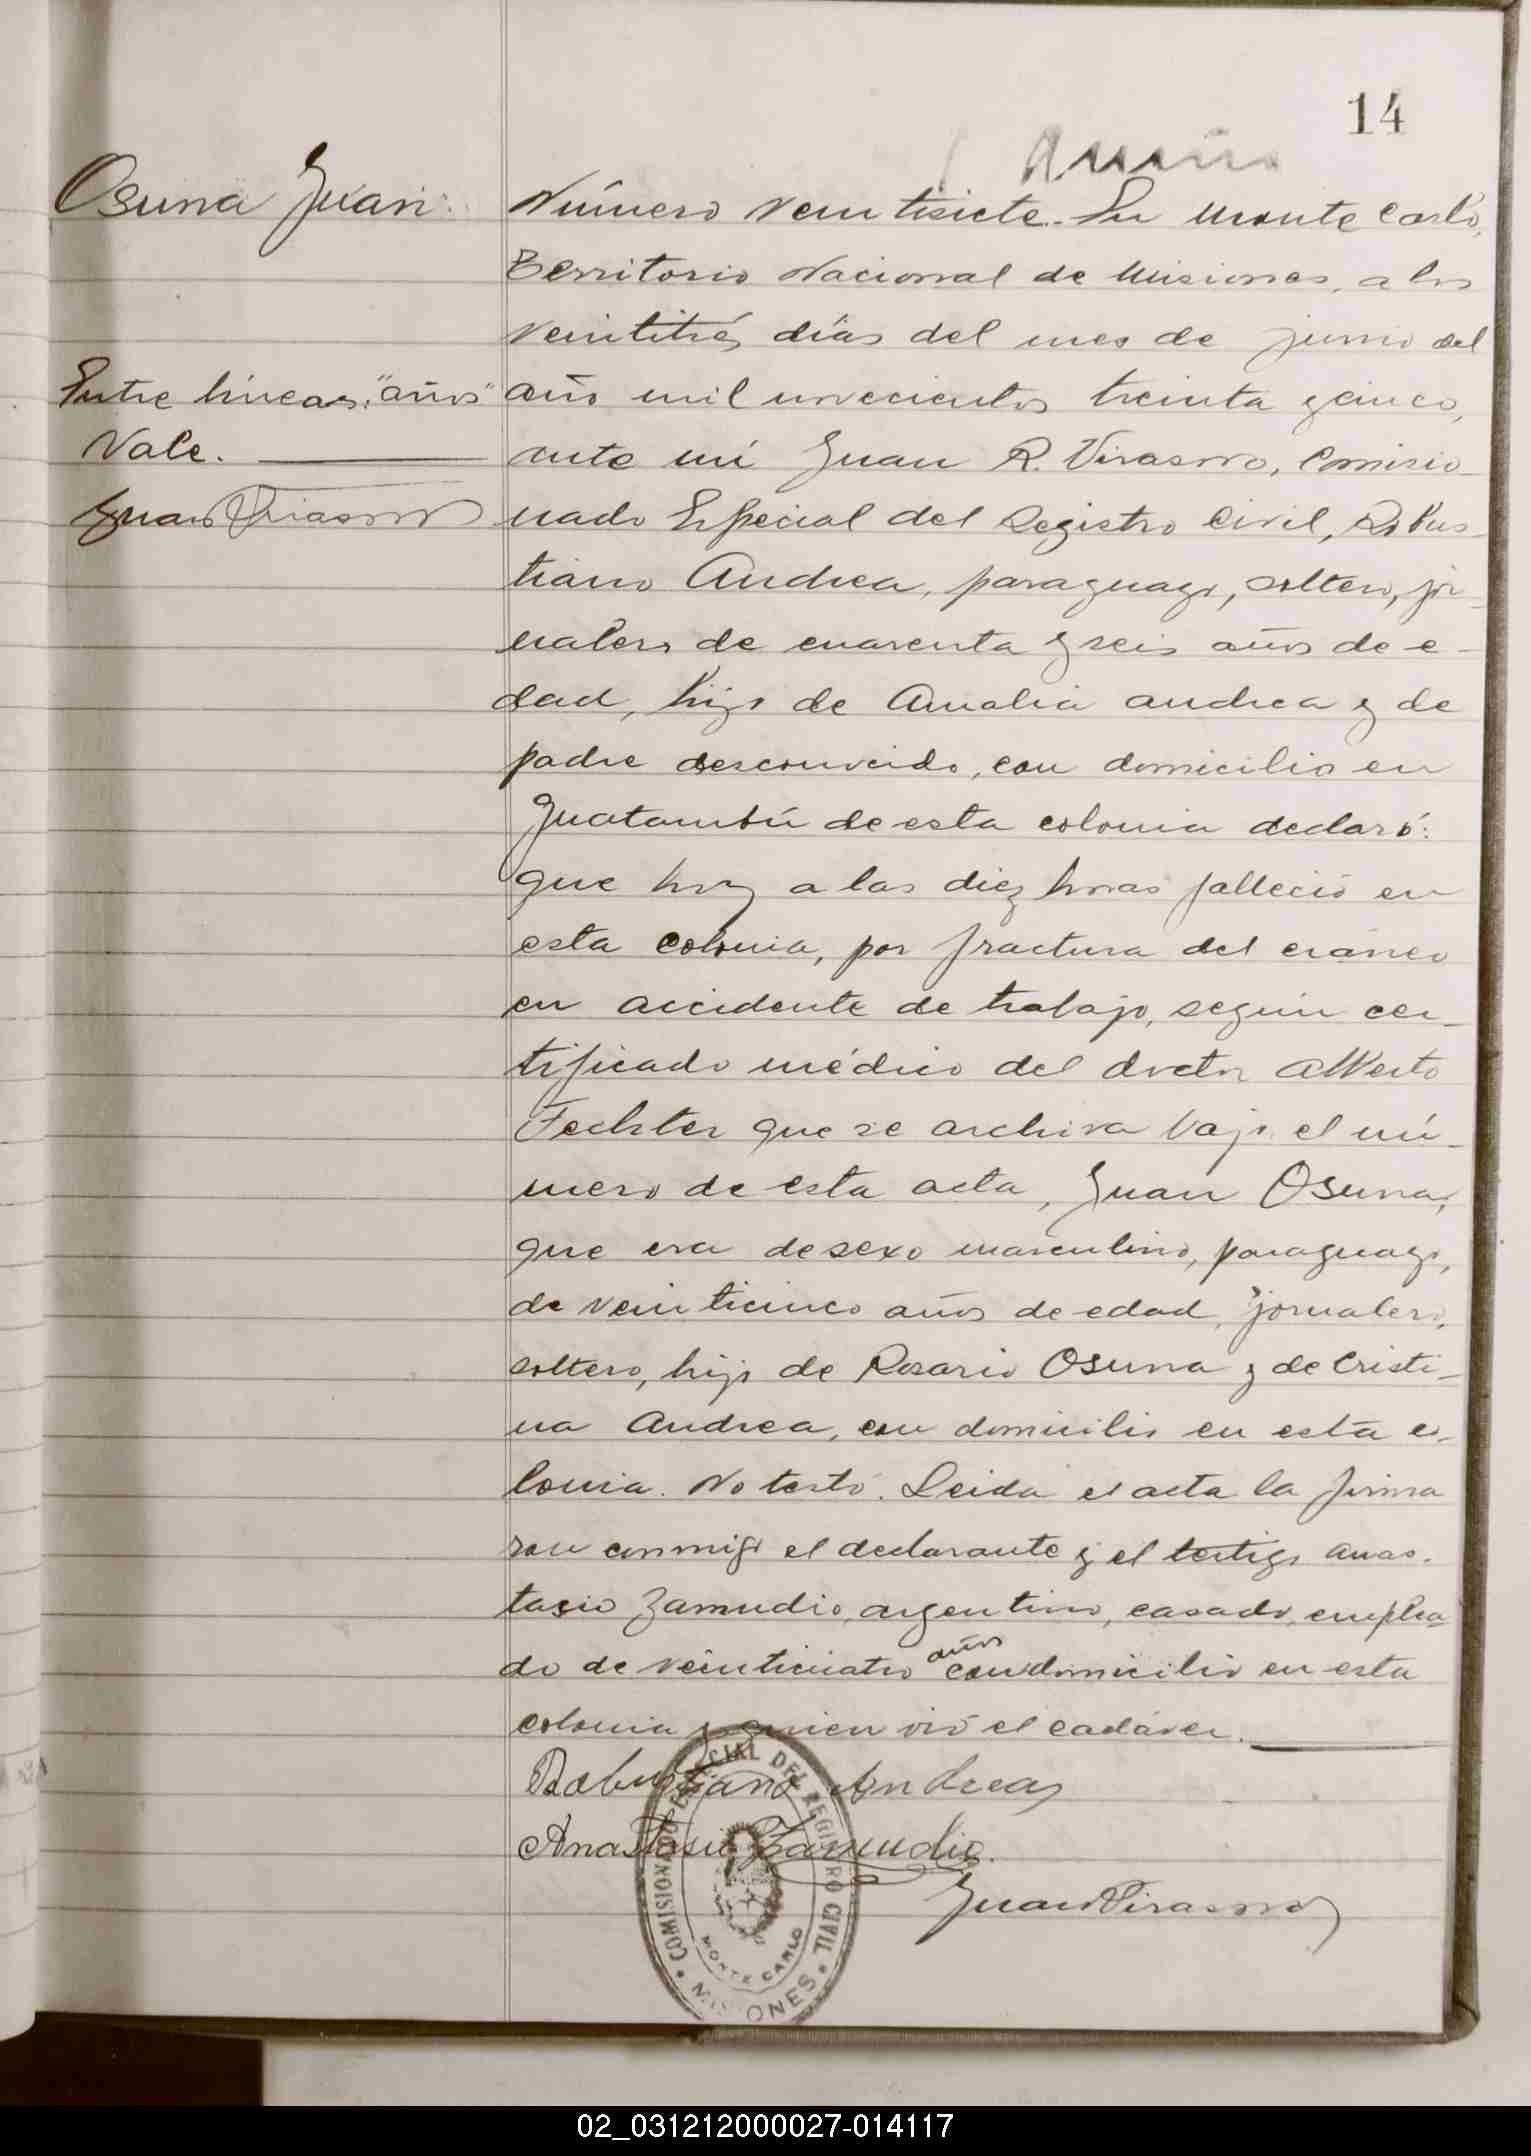 14
Osuna Juan.
Número veintisiete. En Monte Carlo,
Territorio Nacional de Misiones, a los
veintitrés días del mes de junio del
Entre líneas: "años"
año mil novecientos treinta y cinco,
Vale.
ante mí Juan R. Virasoro, Comisio-
Juan Virasoro
nado Especial del Registro Civil, Robus-
tiano Andrea, paraguayo, soltero, jor-
nalero de cuarenta y seis años de e-
dad, hijo de Amalia Andrea y de
padre desconocido, con domicilio en
Guatambú de esta colonia declaró:
que hoy a las diez horas falleció en
esta colonia, por fractura del cráneo
en accidente de trabajo, según cer-
tificado médico del doctor Alberto
Fechter que se archiva bajo el nú-
mero de esta acta, Juan Osuna,
que era de sexo masculino, paraguayo,
de veinticinco años de edad, jornalero,
soltero, hijo de Rosario Osuna y de Cristi-
na Andrea, con domicilio en esta co-
lonia. No testó. Leída el acta la firma
ron conmigo el declarante y el testigo Anas-
tasio Zamudio, argentino, casado, emplea
do de veinticuatro años con domicilio en esta
colonia y quien vió el cadáver.
Robustiano Andrea
Anastasio Zamudio.
Juan Virasoro
COMISIONADO ESPECIAL DEL REGISTRO CIVIL
MONTE CARLO
MISIONES
02_031212000027-014117